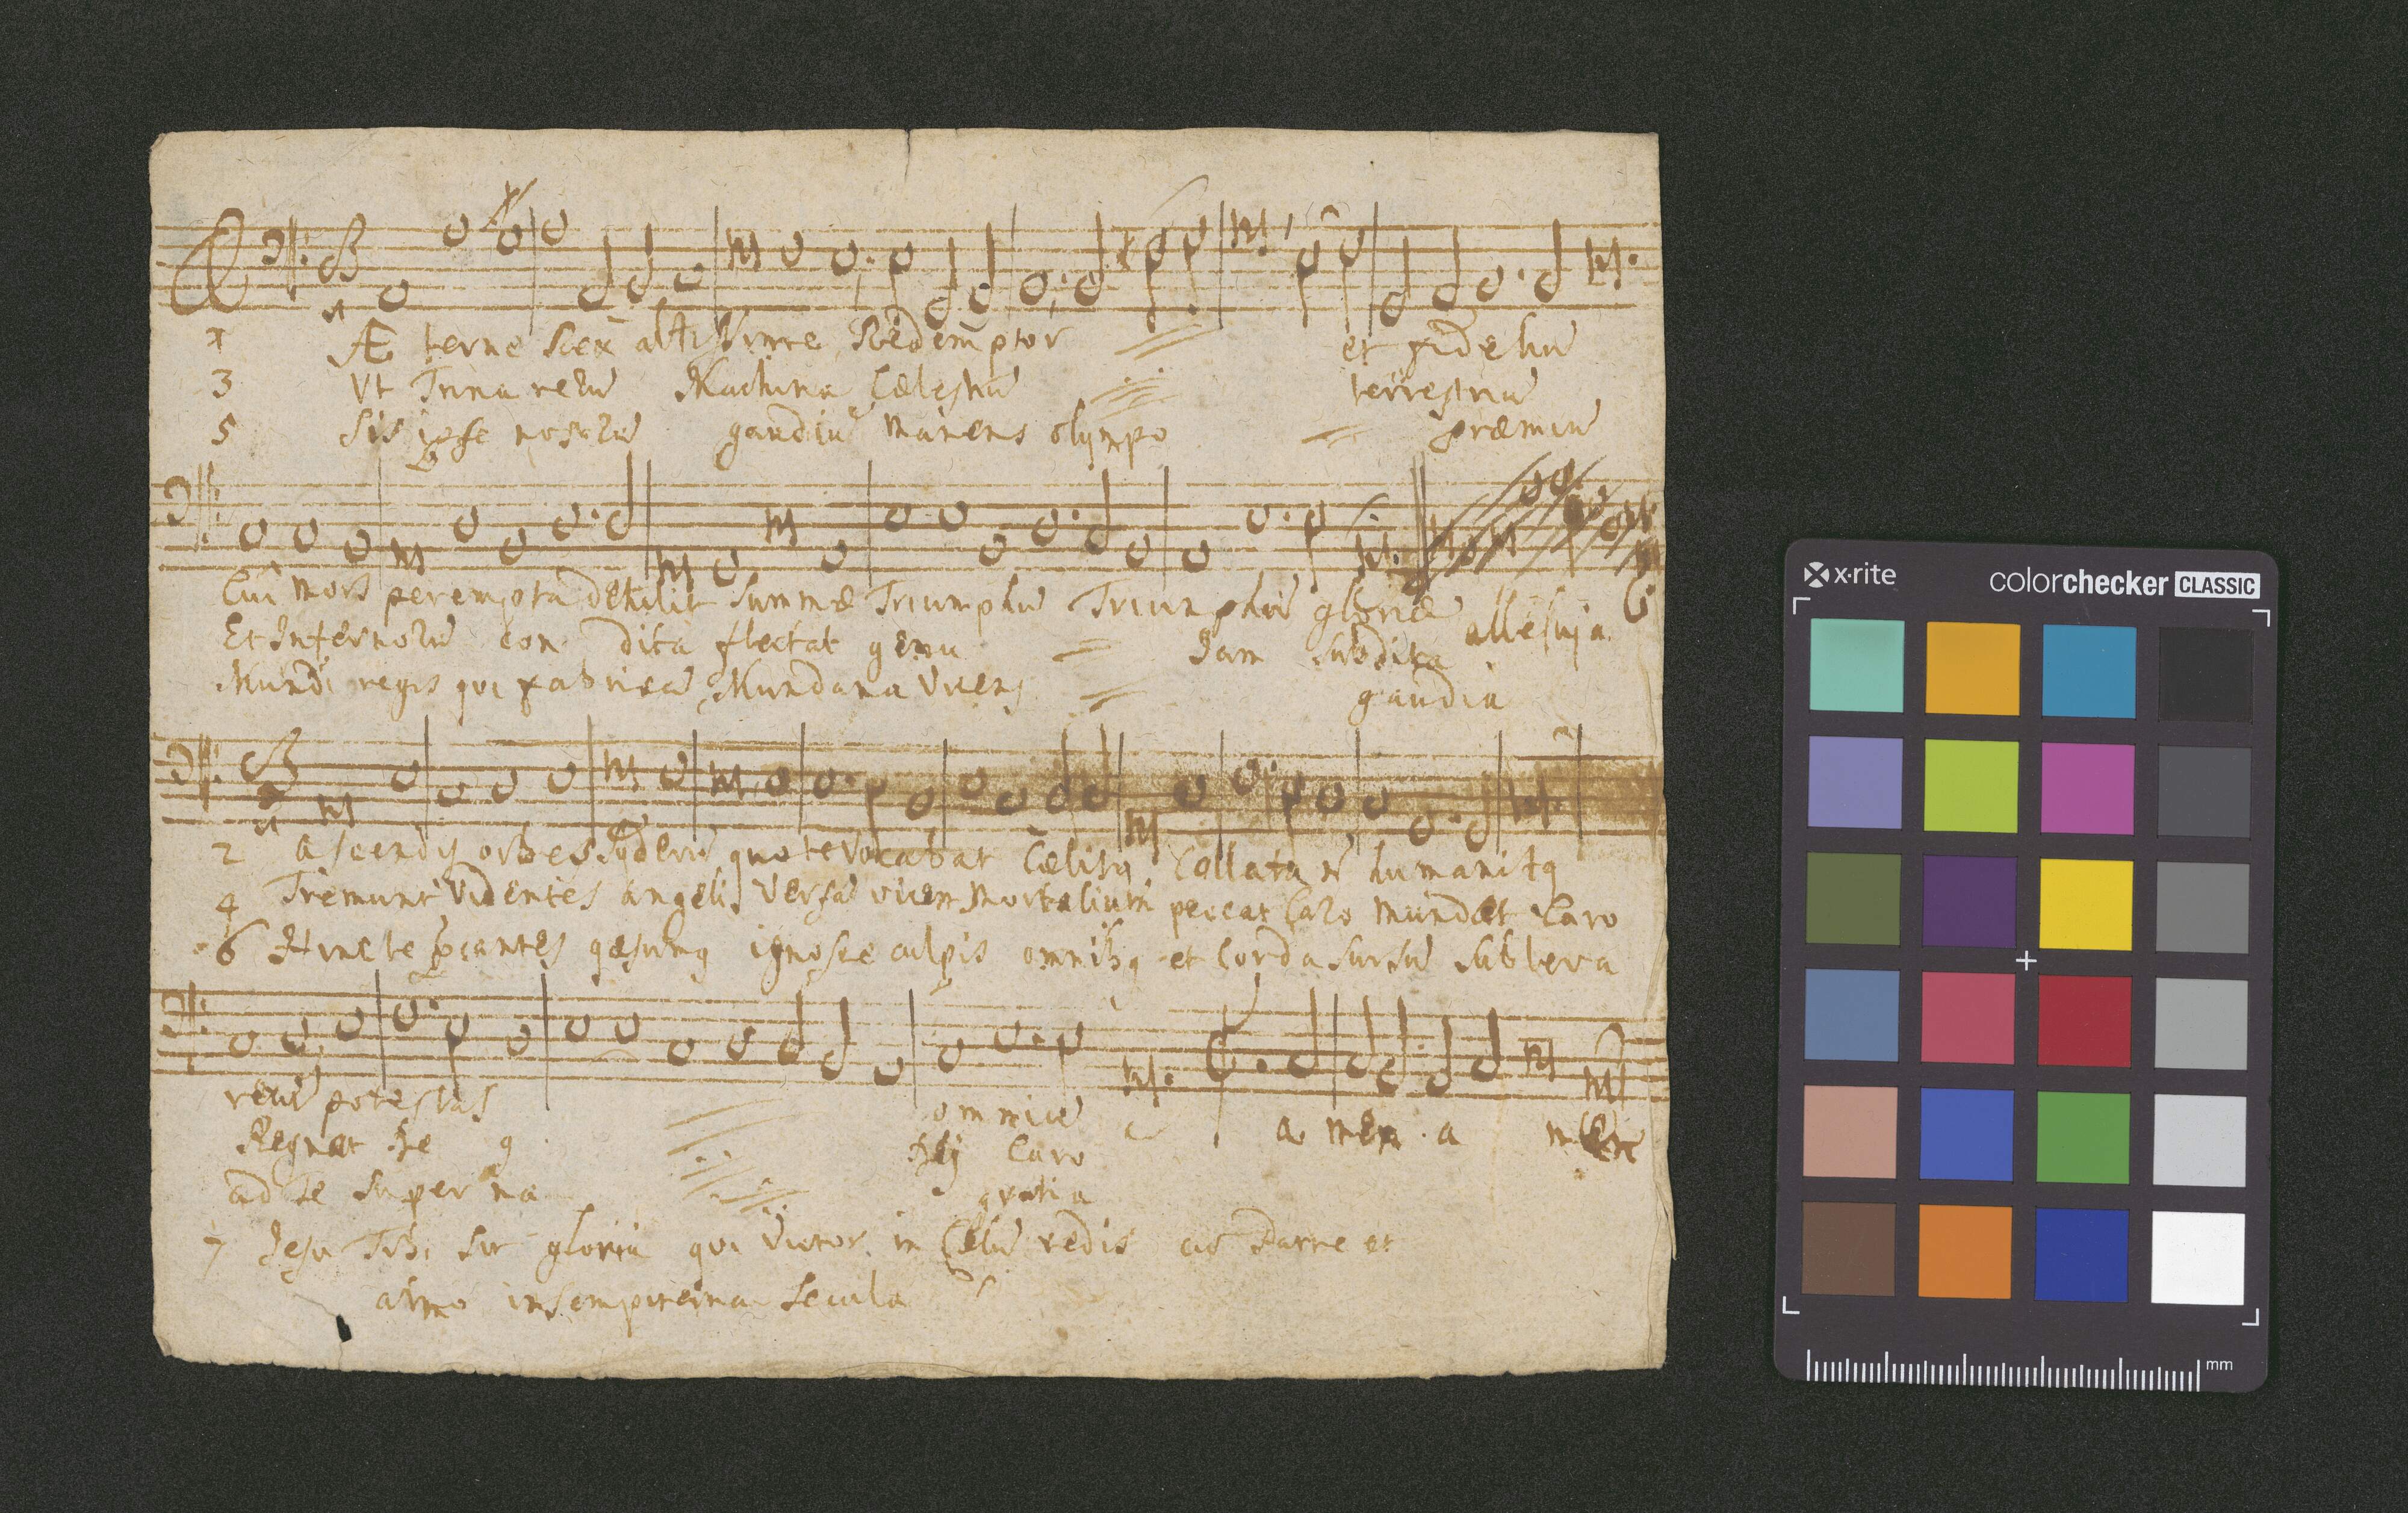 1 Æ terne Rex altissime Redemptor et fideliū
3 Vt Trina rerū Machina Cælestiū terrestriū
5 Sis ipse nostrū gaudiū Manens olympo præmiū
Cui mors perempta detulit summæ Triumphū Triumphū gloriæ alleluja
Et Infernorū con dita flectat genu Jam subdita
Mundi regis qui fabricā Mundana Vincens gaudia
2 ascendis orbes syderū quo te Vocabat Cælitq Collata nō humanitq
4 Tremunt Videntes angeli Versā vicem Mortalium peccat Caro mundat Caro
6 Hinc te precantes qæsumq ignosce culpis omnibq et Corda sursū subleva
rerū potestas omniū a men . a men
Regnat De q Dei Caro
ad te super na gratia
7 Jesu Tibi sit gloria qui Victor in Cælū redis cū Patre et
almo in sempiterna secula
x-rite colorchecker CLASSIC
mm